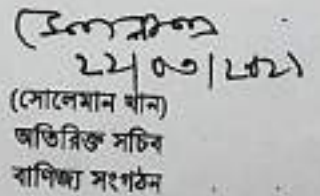 ২২/০৩/২০২১
(সোলেমান খান)
অতিরিক্ত সচিব
বাণিজ্য সংগঠন